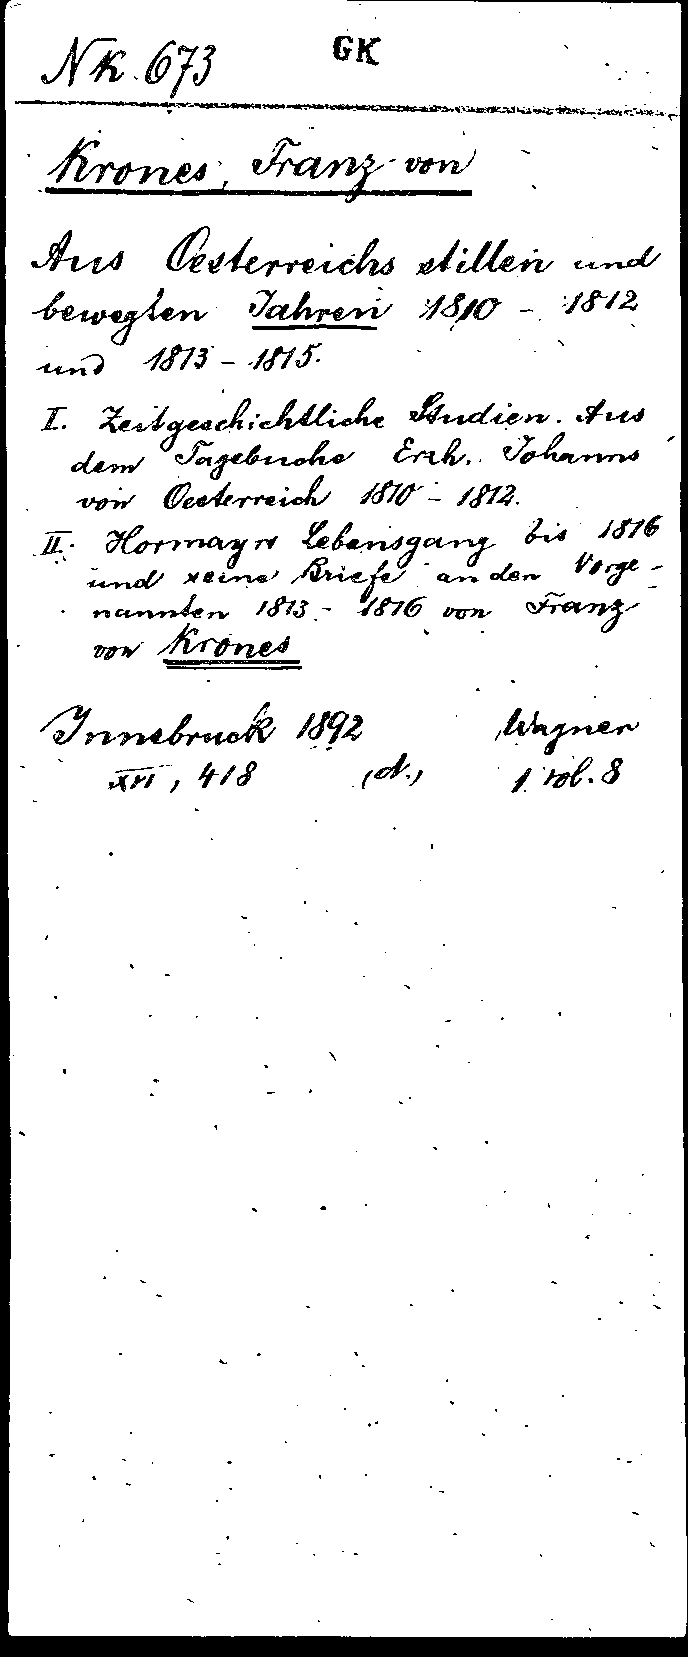 NK 673 GK
Krones, Franz von
Aus Oesterreichs stillen und
bewegten Jahren 1810 - 1812
und 1813 - 1815.
I. Zeitgeschichtliche Studien. Aus
dem Tagebuche Erzh. Johanns
von Oesterreich 1810 - 1812.
II. Hormayrs Lebensgang bis 1816
und seine Briefe an den Vorge-
nannten 1813 - 1816 von Franz
von Krones
Innsbruck 1892 Wagner
XVI, 418 (d.) 1 vol. 8